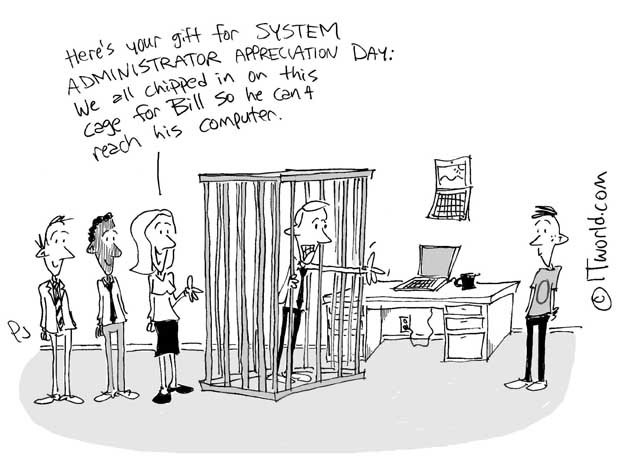 Here's your gift for SYSTEM
ADMINISTRATOR APPRECIATION DAY:
We all chipped in on this
cage for Bill so he can't
reach his computer.
PJ
© ITworld.com